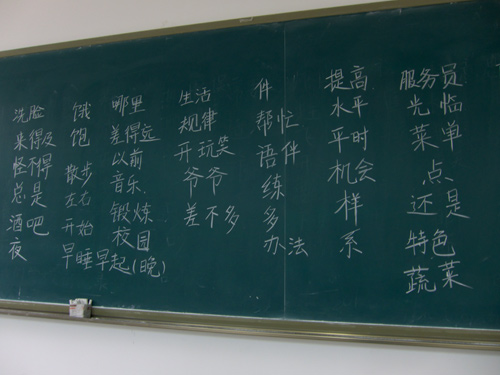 洗脸
来得及
怪不得
总是
酒吧
夜
饿
饱
散步
左右
开始
早睡早起(晚)
哪里
差得远
以前
音乐
锻炼
校园
生活
规律
开玩笑
爷爷
差不多
件
帮忙
语伴
练
多
办法
提高
水平
平时
机会
样
系
服务员
光临
菜单
点
还是
特色
蔬菜